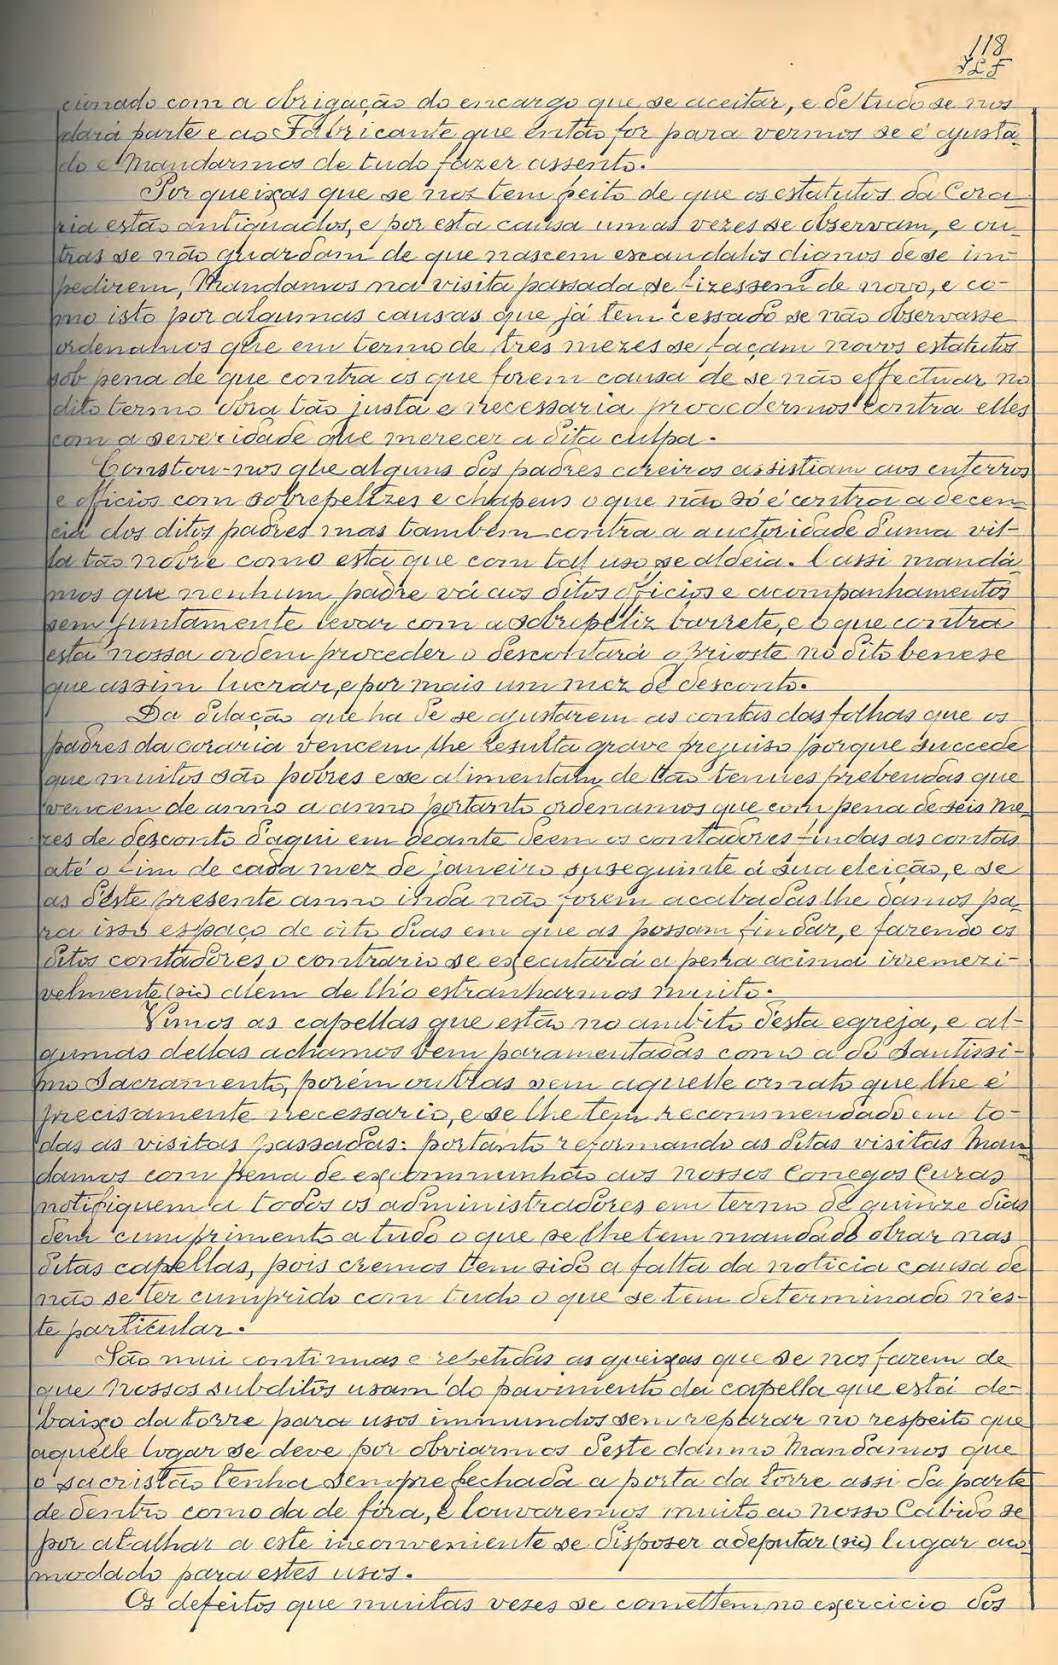 118
cionado com a obrigação do encargo que se aceitar, e de tudo se nos
dará parte e ao Fabricante que então for para vermos se é ajusta-
do e Mandarmos de tudo fazer assento.
Por queixas que se nos tem feito de que os estatutos da Cora-
ria estão antiquados, e por esta causa umas vezes se observam, e ou-
tras se não guardam de que nascem escandalos dignos de se im-
pedirem, Mandamos na visita passada se fizessem de novo, e co-
mo isto por algumas causas que já tem cessado se não observasse
ordenamos que em termo de tres mezes se façam novos estatutos
sob pena de que contra os que forem causa de se não effectuar no
dito termo obra tão justa e necessaria procedermos contra elles
com a severidade que merecer a dita culpa.
Constou-nos que alguns dos padres coreiros assistiam aos enterros
e officios com sobrepelizes e chapeus o que não só é contra a decen-
cia dos ditos padres mas tambem contra a auctoridade d'uma vil-
la tão nobre como esta que com tal uso se aldeia. E assi mandá-
mos que nenhum padre vá aos ditos officios e acompanhamentos
sem juntamente levar com a sobrepeliz barrete, e o que contra
esta nossa ordem proceder o descontará o prioste no dito benese
que assim lucrar, e por mais um mez de desconto.
Da dilação que ha de se ajustarem as contas das folhas que os
padres da coraria vencem lhe resulta grave prejuiso porque succede
que muitos são pobres e se alimentam de tão tenues prebendas que
vencem de anno a anno portanto ordenamos que com pena de seis me-
zes de desconto d'aqui em deante deem os contadores findas as contas
até o fim de cada mez de janeiro suseguinte á sua eleição, e se
as d'este presente anno inda não forem acabadas lhe damos pa-
ra isso espaço de oito dias em que as possam findar, e fazendo os
ditos contadores, o contrario se executará a pena acima irremezi-
velmente (sic) alem de lh'o estranharmos muito.
Vimos as capellas que estão no ambito d'esta egreja, e al-
gumas dellas achamos bem paramentadas como a do Santissi-
mo Sacramento, porém outras sem aquelle ornato que lhe é
precisamente necessario, e se lhe tem recommendado em to-
das as visitas passadas: portanto reformando as ditas visitas Man-
damos com pena de excommunhão aos nossos Conegos Curas
notifiquem a todos os administradores em termo de quinze dias
dem cumprimento a tudo o que se lhe tem mandado obrar nas
ditas capellas, pois cremos tem sido a falta da noticia causa de
não se ter cumprido com tudo o que se tem determinado n'es-
te particular.
São mui continuas e repetidas as queixas que se nos fazem de
que nossos subditos usam do pavimento da capella que está de-
baixo da torre para usos immundos sem reparar no respeito que
aquelle logar se deve por obviarmos d'este damno Mandamos que
o sacristão tenha sempre fechada a porta da torre assi da parte
de dentro como da de fóra, e louvaremos muito ao nosso Cabido se
por atalhar a este inconveniente se dispozer adeputar (sic) lugar aco-
modado para estes usos.
Os defeitos que muitas vezes se comettem no exercicio dos